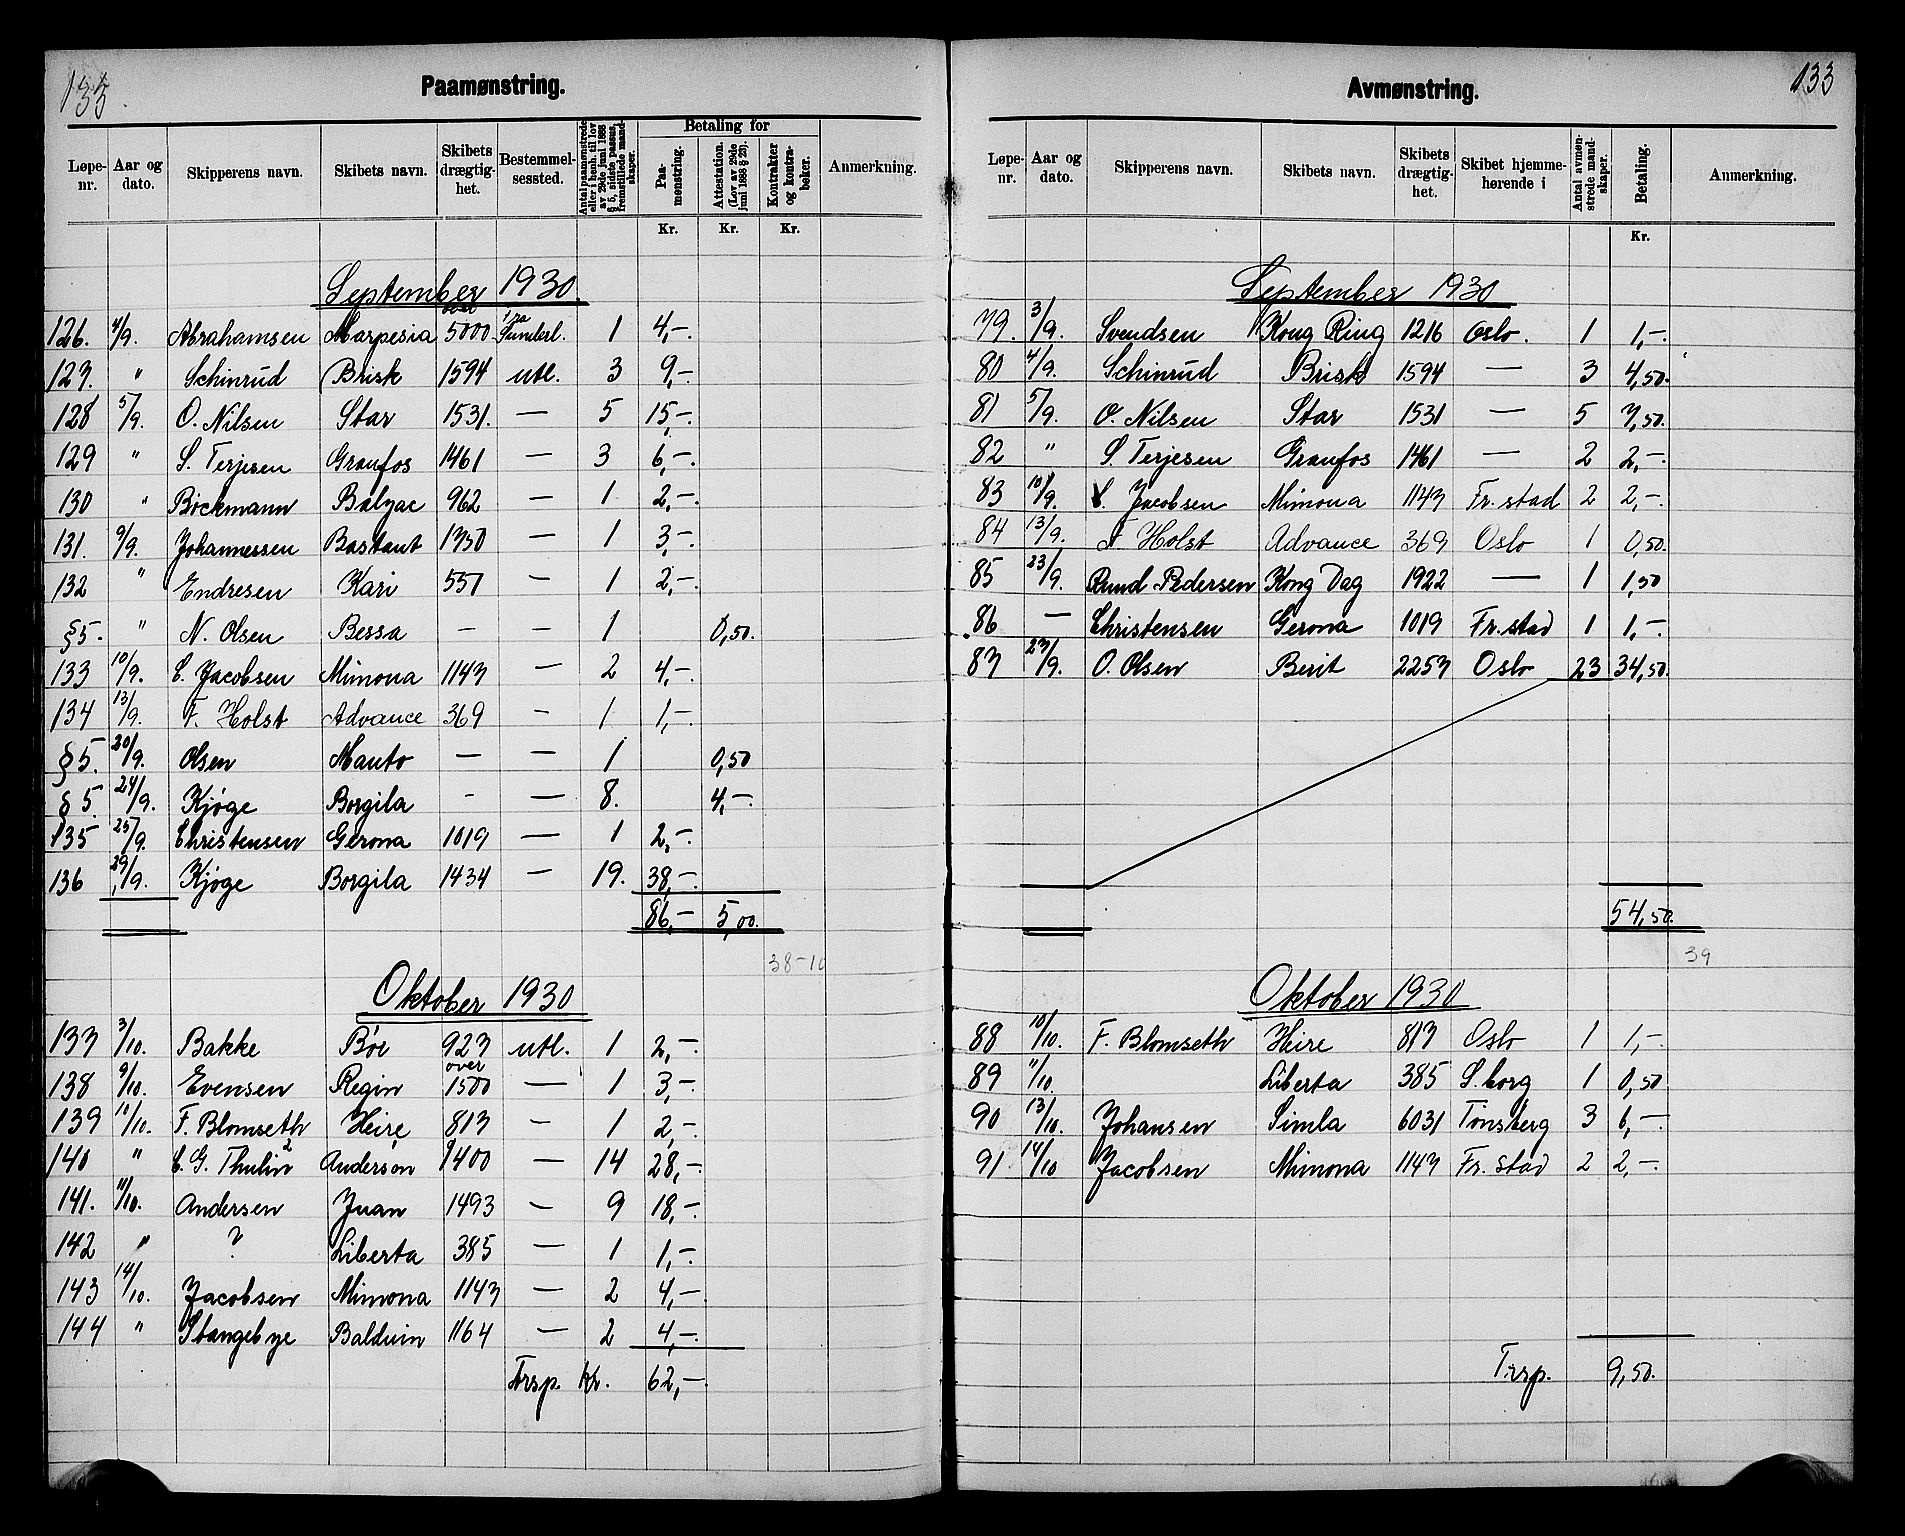 133.
Paamønstring.
Løpe-nr. | Aar og dato. | Skipperens navn. | Skibets navn. | Skibets drægtig-het. | Bestemmel-sessted. | Antal paamønstrede eller i henh. til lov av 29de juni 1888 § 5, sidste passus, fremstillede mand-skaper. | Betaling for | Anmerkning.
Paa-mønstring. | Attestation. (Lov av 29de juni 1888 § 23). | Kontrakter og kontra-bøker.
Kr. | Kr. | Kr.
September 1930
126. 4/9. Abrahamsen Marpesia over 5000 fra Sunderl. 1 4,-
127. " Schinrud Brisk 1594 utl. 3 9,-
128 5/9. O. Nilsen Star 1531. — 5 15,-
129 " S. Terjesen Granfos 1461 — 3 6,-
130 " Böckmann Balzac 962 — 1 2,-
131. 9/9. Johannessen Bastant 1750 — 1 3,-
132 " Endresen Kari 557 — 1 2,-
§5. " N. Olsen Bessa — — 1 0,50.
133 10/9. C. Jacobsen Mimona 1147 — 2 4,-
134 13/9. F. Holst Advance 369 — 1 1,-
§5. 20/9. Olsen Mauto — — 1 0,50
§5. 24/9. Kjøge Borgila - — 8. 4,-
135 25/9. Christensen Gerona 1019 — 1 2,-
136 29/9. Kjøge Borgila 1434 — 19. 38,-
86,- 5,00.
38-10
Oktober 1930
137 3/10. Bakke Böe 927 utl. 1 2,-
138 9/10. Evensen Regin over 1500 — 1 3,-
139 10/10. F. Blomseth Heire 817 — 1 2,-
140 " C. G. Thulin ? Anderson 1400 — 14 28,-
141. 11/10. Andersen Juan 1493 — 9 18,-
142 " ? Liberta 385 — 1 1,-
143 14/10. Jacobsen Mimona 1147 — 2 4,-
144 " Stangebye Balduin 1164 — 2 4,-
Trsp. Kr. 62,-
133
Avmønstring.
Løpe-nr. | Aar og dato. | Skipperens navn. | Skibets navn. | Skibets drægtig-het. | Skibet hjemme-hørende i | Antal avmøn-strede mand-skaper. | Betaling. | Anmerkning.
Kr.
September 1930
79. 3/9. Svendsen Kong Ring 1216 Oslo. 1 1,-
80 4/9. Schinrud Brisk 1594 — 3 4,50.
81 5/9. O. Nilsen Star 1531 — 5 7,50.
82 " S. Terjesen Granfos 1461 — 2 2,-
83 10/9. C. Jacobsen Mimona 1147 Fr.stad 2 2,-
84 13/9. F. Holst Advance 369 Oslo 1 0,50.
85 23/9. Amd. Pedersen Kong Dag 1922 — 1 1,50
86 — Christensen Gerona 1019 Fr.stad 1 1,-
87 27/9. O. Olsen Berit 2257 Oslo 23 34,50.
54,50.
39
Oktober 1930
88 10/10. F. Blomseth Heire 817 Oslo 1 1,-
89 11/10 Liberta 385 S.borg 1 0,50
90 13/10. Johansen Simla 6031 Tønsberg 3 6,-
91. 14/10 Jacobsen Mimona 1147 Fr.stad 2 2,-
Trsp. 9,50.